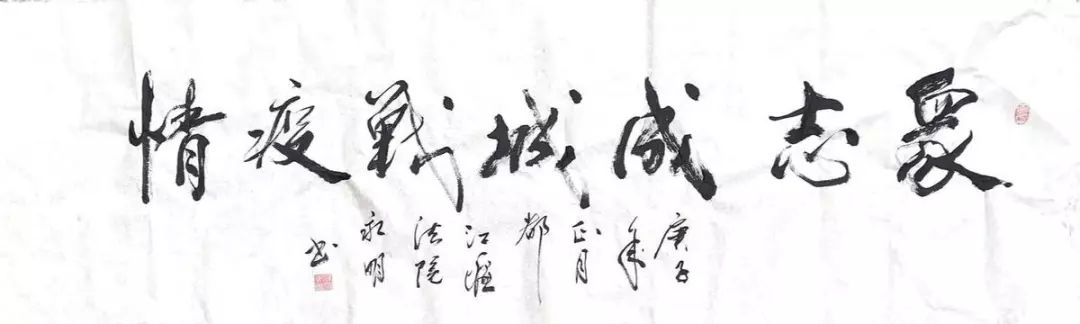 眾志成城戰疫情
庚子
年
正月
都
江堰
法院
永明
书